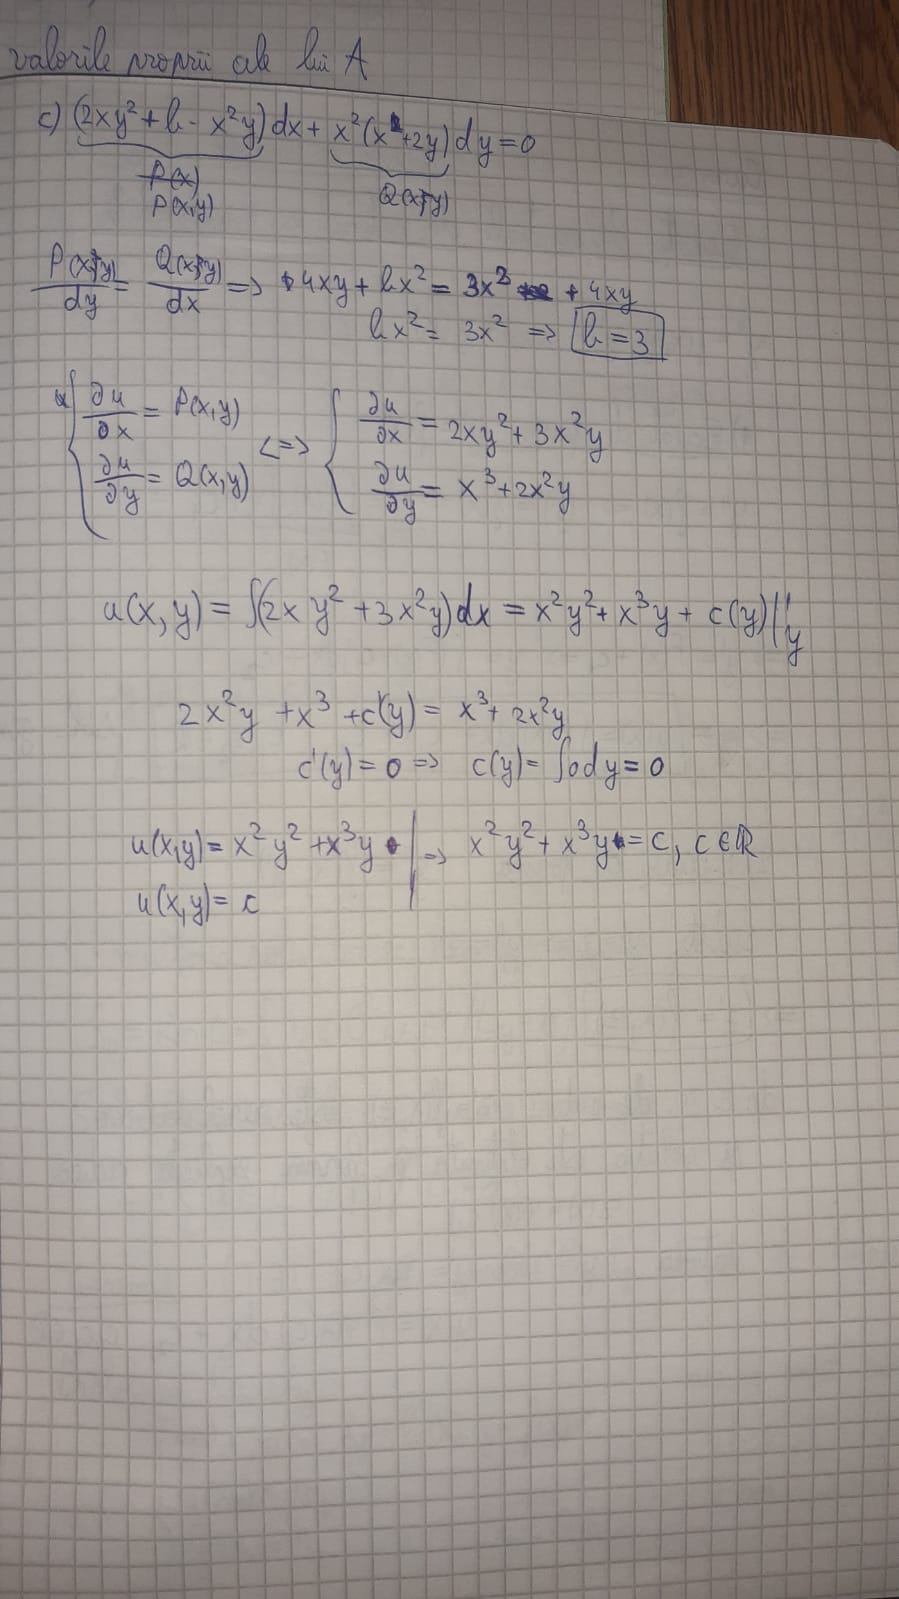 valorile proprii ale lui A
c) (2xy² + b · x²y)dx + x²(x+2y)dy = 0
P(x)
P(x,y) Q(x,y)
P(x,y)/dy = Q(x,y)/dx => 4xy + bx² = 3x² + 4xy
bx² = 3x² => b = 3
{ ∂u/∂x = P(x,y) <=> { ∂u/∂x = 2xy² + 3x²y
∂u/∂y = Q(x,y) ∂u/∂y = x³ + 2x²y
u(x,y) = ∫(2xy² + 3x²y)dx = x²y² + x³y + c(y) |'y
2x²y + x³ + c'(y) = x³ + 2x²y
c'(y) = 0 => c(y) = ∫0dy = 0
u(x,y) = x²y² + x³y | => x²y² + x³y = c, c∈ℝ
u(x,y) = c